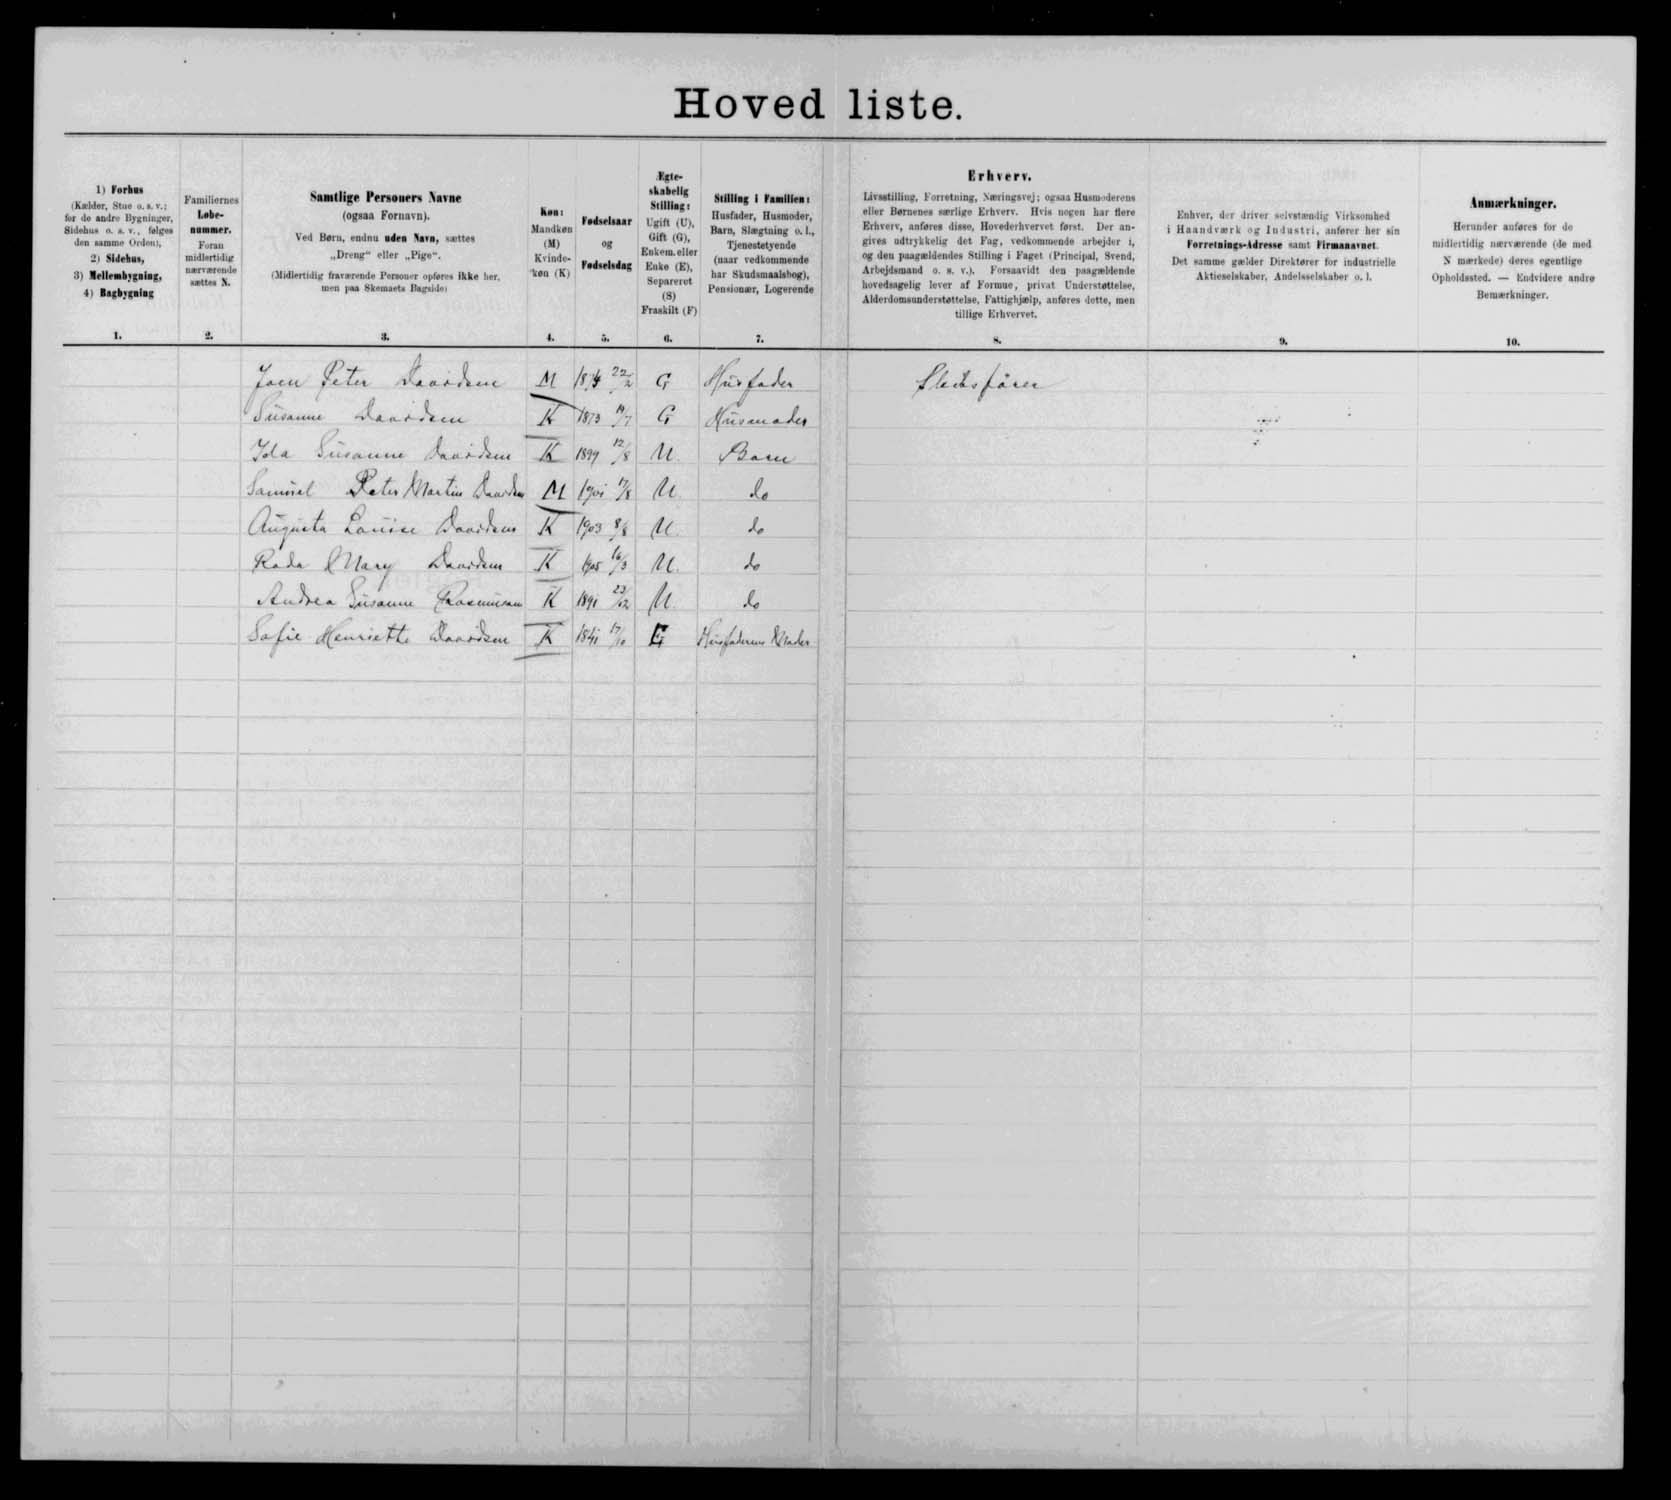 Hovedliste.
1) Forhus
(Kælder, Stue o. s. v.;
for de andre Bygninger,
Sidehus o. s. v., følges
den samme Orden),
2) Sidehus,
3) Mellembygning,
4) Bagbygning
1.
Familiernes
Løbe-
nummer.
Foran
midlertidig
nærværende
sættes N.
2.
Samtlige Personers Navne
(ogsaa Fornavn).
Ved Børn, endnu uden Navn, sættes
„Dreng“ eller „Pige“.
(Midlertidig fraværende Personer opføres ikke her,
men paa Skemaets Bagside)
3.
Køn:
Mandkøn
(M)
Kvinde-
køn (K)
4.
Fødselsaar
og
Fødselsdag
5.
Ægte-
skabelig
Stilling:
Ugift (U),
Gift (G),
Enkem. eller
Enke (E),
Separeret
(S)
Fraskilt (F)
6.
Stilling i Familien:
Husfader, Husmoder,
Barn, Slægtning o. l.,
Tjenestetyende
(naar vedkommende
har Skudsmaalsbog),
Pensionær, Logerende
7.
Erhverv.
Livsstilling, Forretning, Næringsvej; ogsaa Husmoderens
eller Børnenes særlige Erhverv. Hvis nogen har flere
Erhverv, anføres disse, Hovederhvervet først. Der an-
gives udtrykkelig det Fag, vedkommende arbejder i,
og den paagældendes Stilling i Faget (Principal, Svend,
Arbejdsmand o. s. v.). Forsaavidt den paagældende
hovedsagelig lever af Formue, privat Understøttelse,
Alderdomsunderstøttelse, Fattighjælp, anføres dette, men
tillige Erhvervet.
8.
Enhver, der driver selvstændig Virksomhed
i Haandværk og Industri, anfører her sin
Forretnings-Adresse samt Firmanavnet.
Det samme gælder Direktører for industrielle
Aktieselskaber, Andelsselskaber o. l.
9.
Anmærkninger.
Herunder anføres for de
midlertidig nærværende (de med
N mærkede) deres egentlige
Opholdssted. — Endvidere andre
Bemærkninger.
10.
Peter Davidsen M 1874 22/2 G Husfader
Susanne Davidsen K 1873 19/7 G Husmoder
Ida Susanne Davidsen K 1899 12/8 U. Barn
Samuel Peter Martin Davidsen M 1901 17/8 U. do
Augusta Louise Davidsen K 1903 8/8 U. do
Mary Davidsen K 1905 16/3 U. do
Andrea Susanne Rasmussen K 1891 23/12 U. do
Sofie Henriette Davidsen K 1841 17/10 E Husfaderens Moder